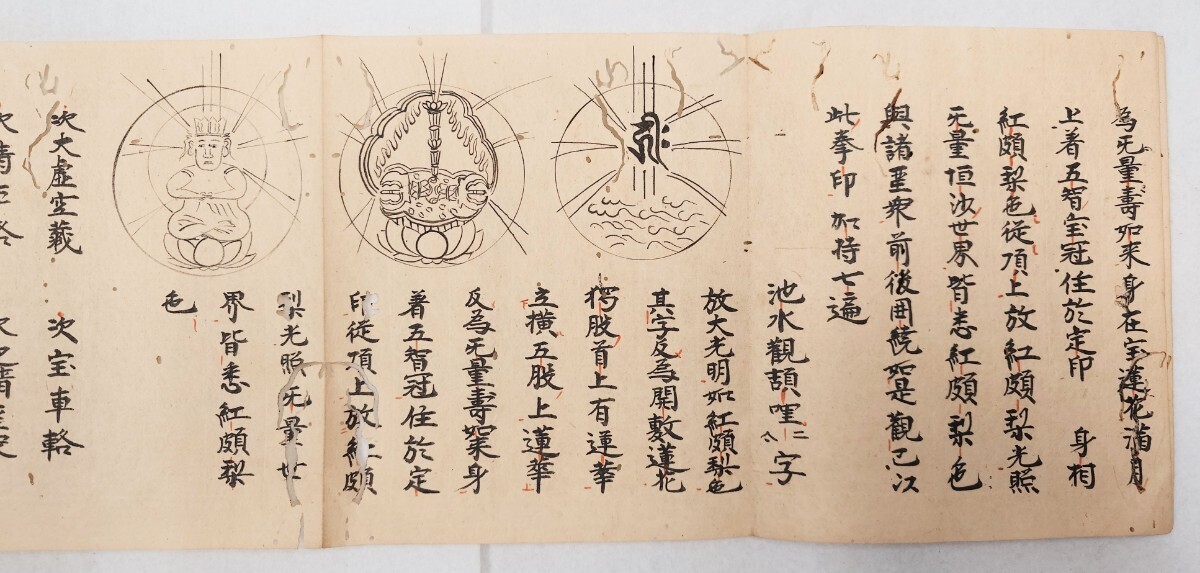 為无量壽如來身在宝蓮花滿月
上着五智宝冠住於定印 身相
紅頗梨色從頂上放紅頗梨光照
无量恒沙世界皆悉紅頗梨色
與諸聖衆前後囲繞如是觀已以
此拳印加持七遍
池水觀頡哩二合字
放大光明如紅頗梨色
其字反為開敷蓮花
獨股首上有蓮華
立横五股上蓮華
反為无量壽如来身
着五智冠住於定
印從頂上放紅頗
梨光照无量世
界皆悉紅頗梨
色
次大虚空蔵 次宝車輅
次請車輅